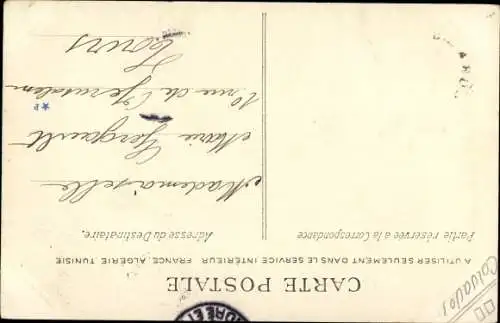 CARTE POSTALE
A UTILISER SEULEMENT DANS LE SERVICE INTERIEUR FRANCE, ALGERIE, TUNISIE
Partie réservée à la Correspondance
Adresse du Destinataire.
Mademoiselle
Marie Gergault
1 rue de Jérusalem
Tours
Calvados
DRE ET